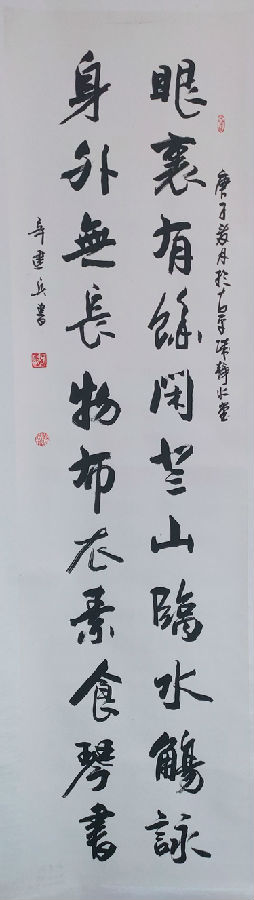 庚子月於靜心堂
眼裏有餘閑登山臨水觴詠
身外無長物布衣素食琴書
建兵書